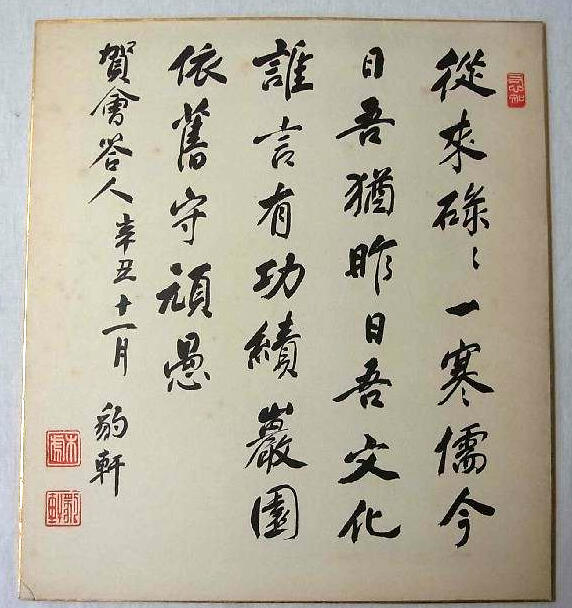 從來碌〻一寒儒今
日吾猶昨日吾文化
誰言有功績巖園
依舊守頑愚
賀會答人 辛丑十一月 豹軒